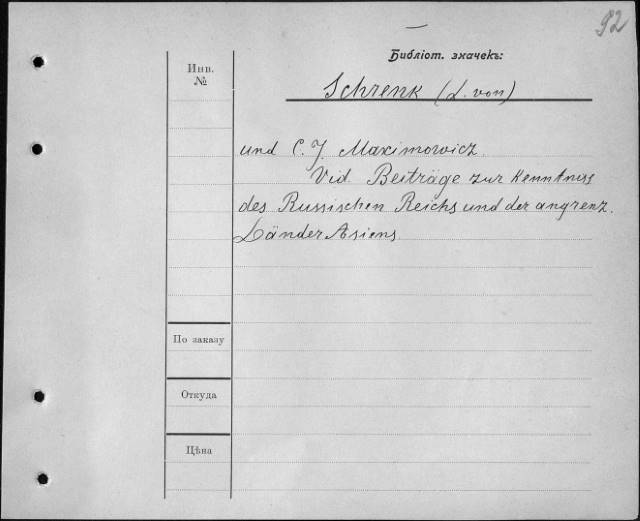 92
Библіот. значекъ:
Инв.
№
Schrenk (L. von)
und C. J. Maximowicz.
Vid. Beiträge zur Kenntniss
des Russischen Reichs und der angrenz.
Länder Asiens.
По заказу
Откуда
Цѣна